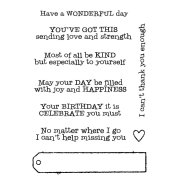 Have a WONDERFUL day
YOU'VE GOT THIS
sending love and strength
Most of all be KIND
but especially to yourself
May your DAY be filled
with joy and HAPPINESS
Your BIRTHDAY it is
CELEBRATE you must
No matter where I go
I can't help missing you
I can't thank you enough